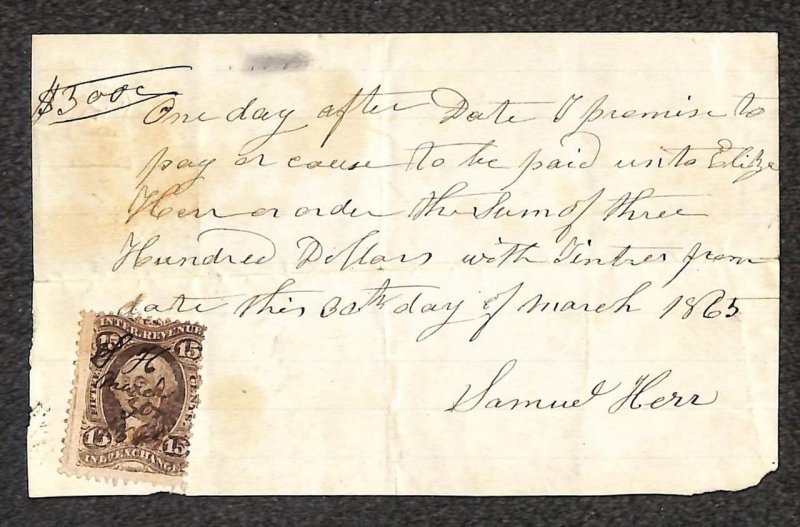 $300.00
One day after Date I promise to
pay or cause to be paid unto Eliza
Herr or order the Sum of three
Hundred Dollars with Intres from
date this 30th day of March 1865
Samuel Herr
U.S.
INTER. REVENUE
15 15
FIFTEEN CENTS
H
March
30
15 15
INLD EXCHANGE